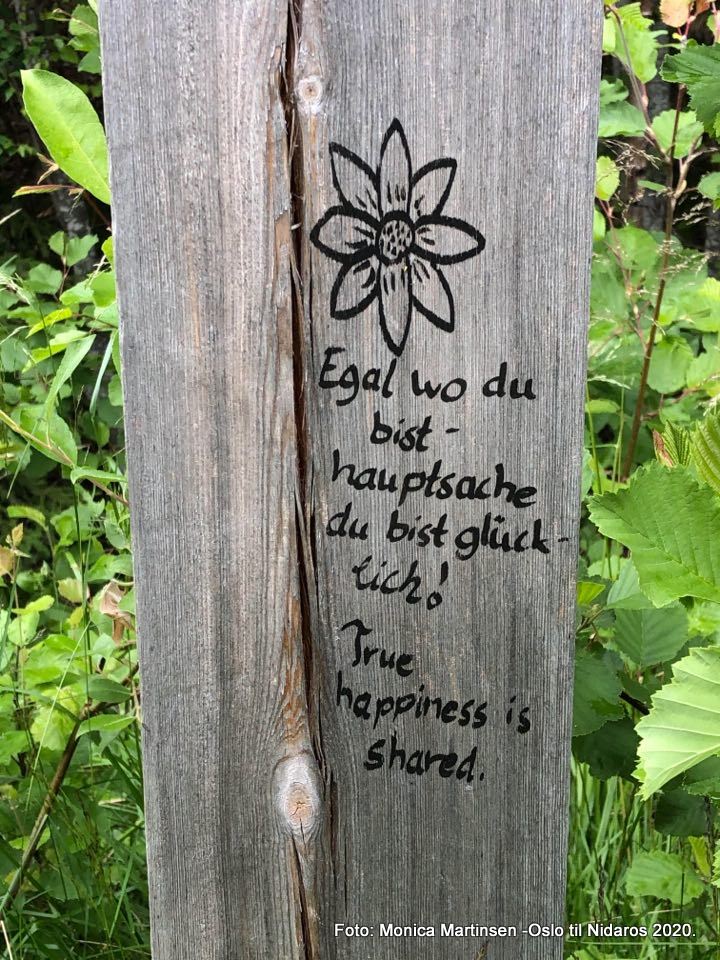 Egal wo du
bist -
hauptsache
du bist glück-
lich!
True
happiness is
shared.
Foto: Monica Martinsen -Oslo til Nidaros 2020.